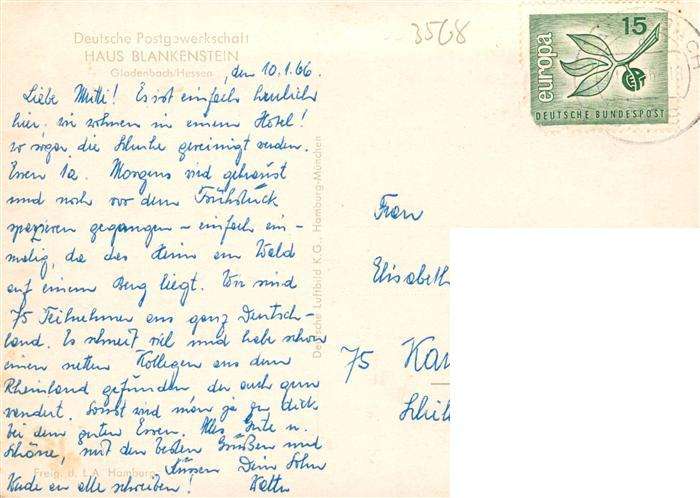 Deutsche Postgewerkschaft
HAUS BLANKENSTEIN
Gladenbach/Hessen
3568
europa
15
DEUTSCHE BUNDESPOST
, den 10.1.66.
Liebe Mutti! Es ist einfach herrlich
hier, wir wohnen in einem Hotel!
wo sogar die Schuhe gereinigt werden.
Essen 1a. Morgens wird gebraust
und noch vor dem Frühstück
spazieren gegangen - einfach ein-
malig, da das Heim am Wald
auf einem Berg liegt. Wir sind
75 Teilnehmer aus ganz Deutsch-
land. Es schneit viel und habe schon
einen netten Kollegen aus dem
Rheinland gefunden der auch gern
wandert. Sonst wird man ja zu dick
bei dem guten Essen. Alles Gute u.
Schöne, mit den besten Grüßen und
Küssen Dein Sohn
Werde an alle schreiben!
Freig. d. L.A. Hamburg
Deutsche Luftbild K.G. Hamburg-München
Frau
Elisabeth
75 Kar
Schil